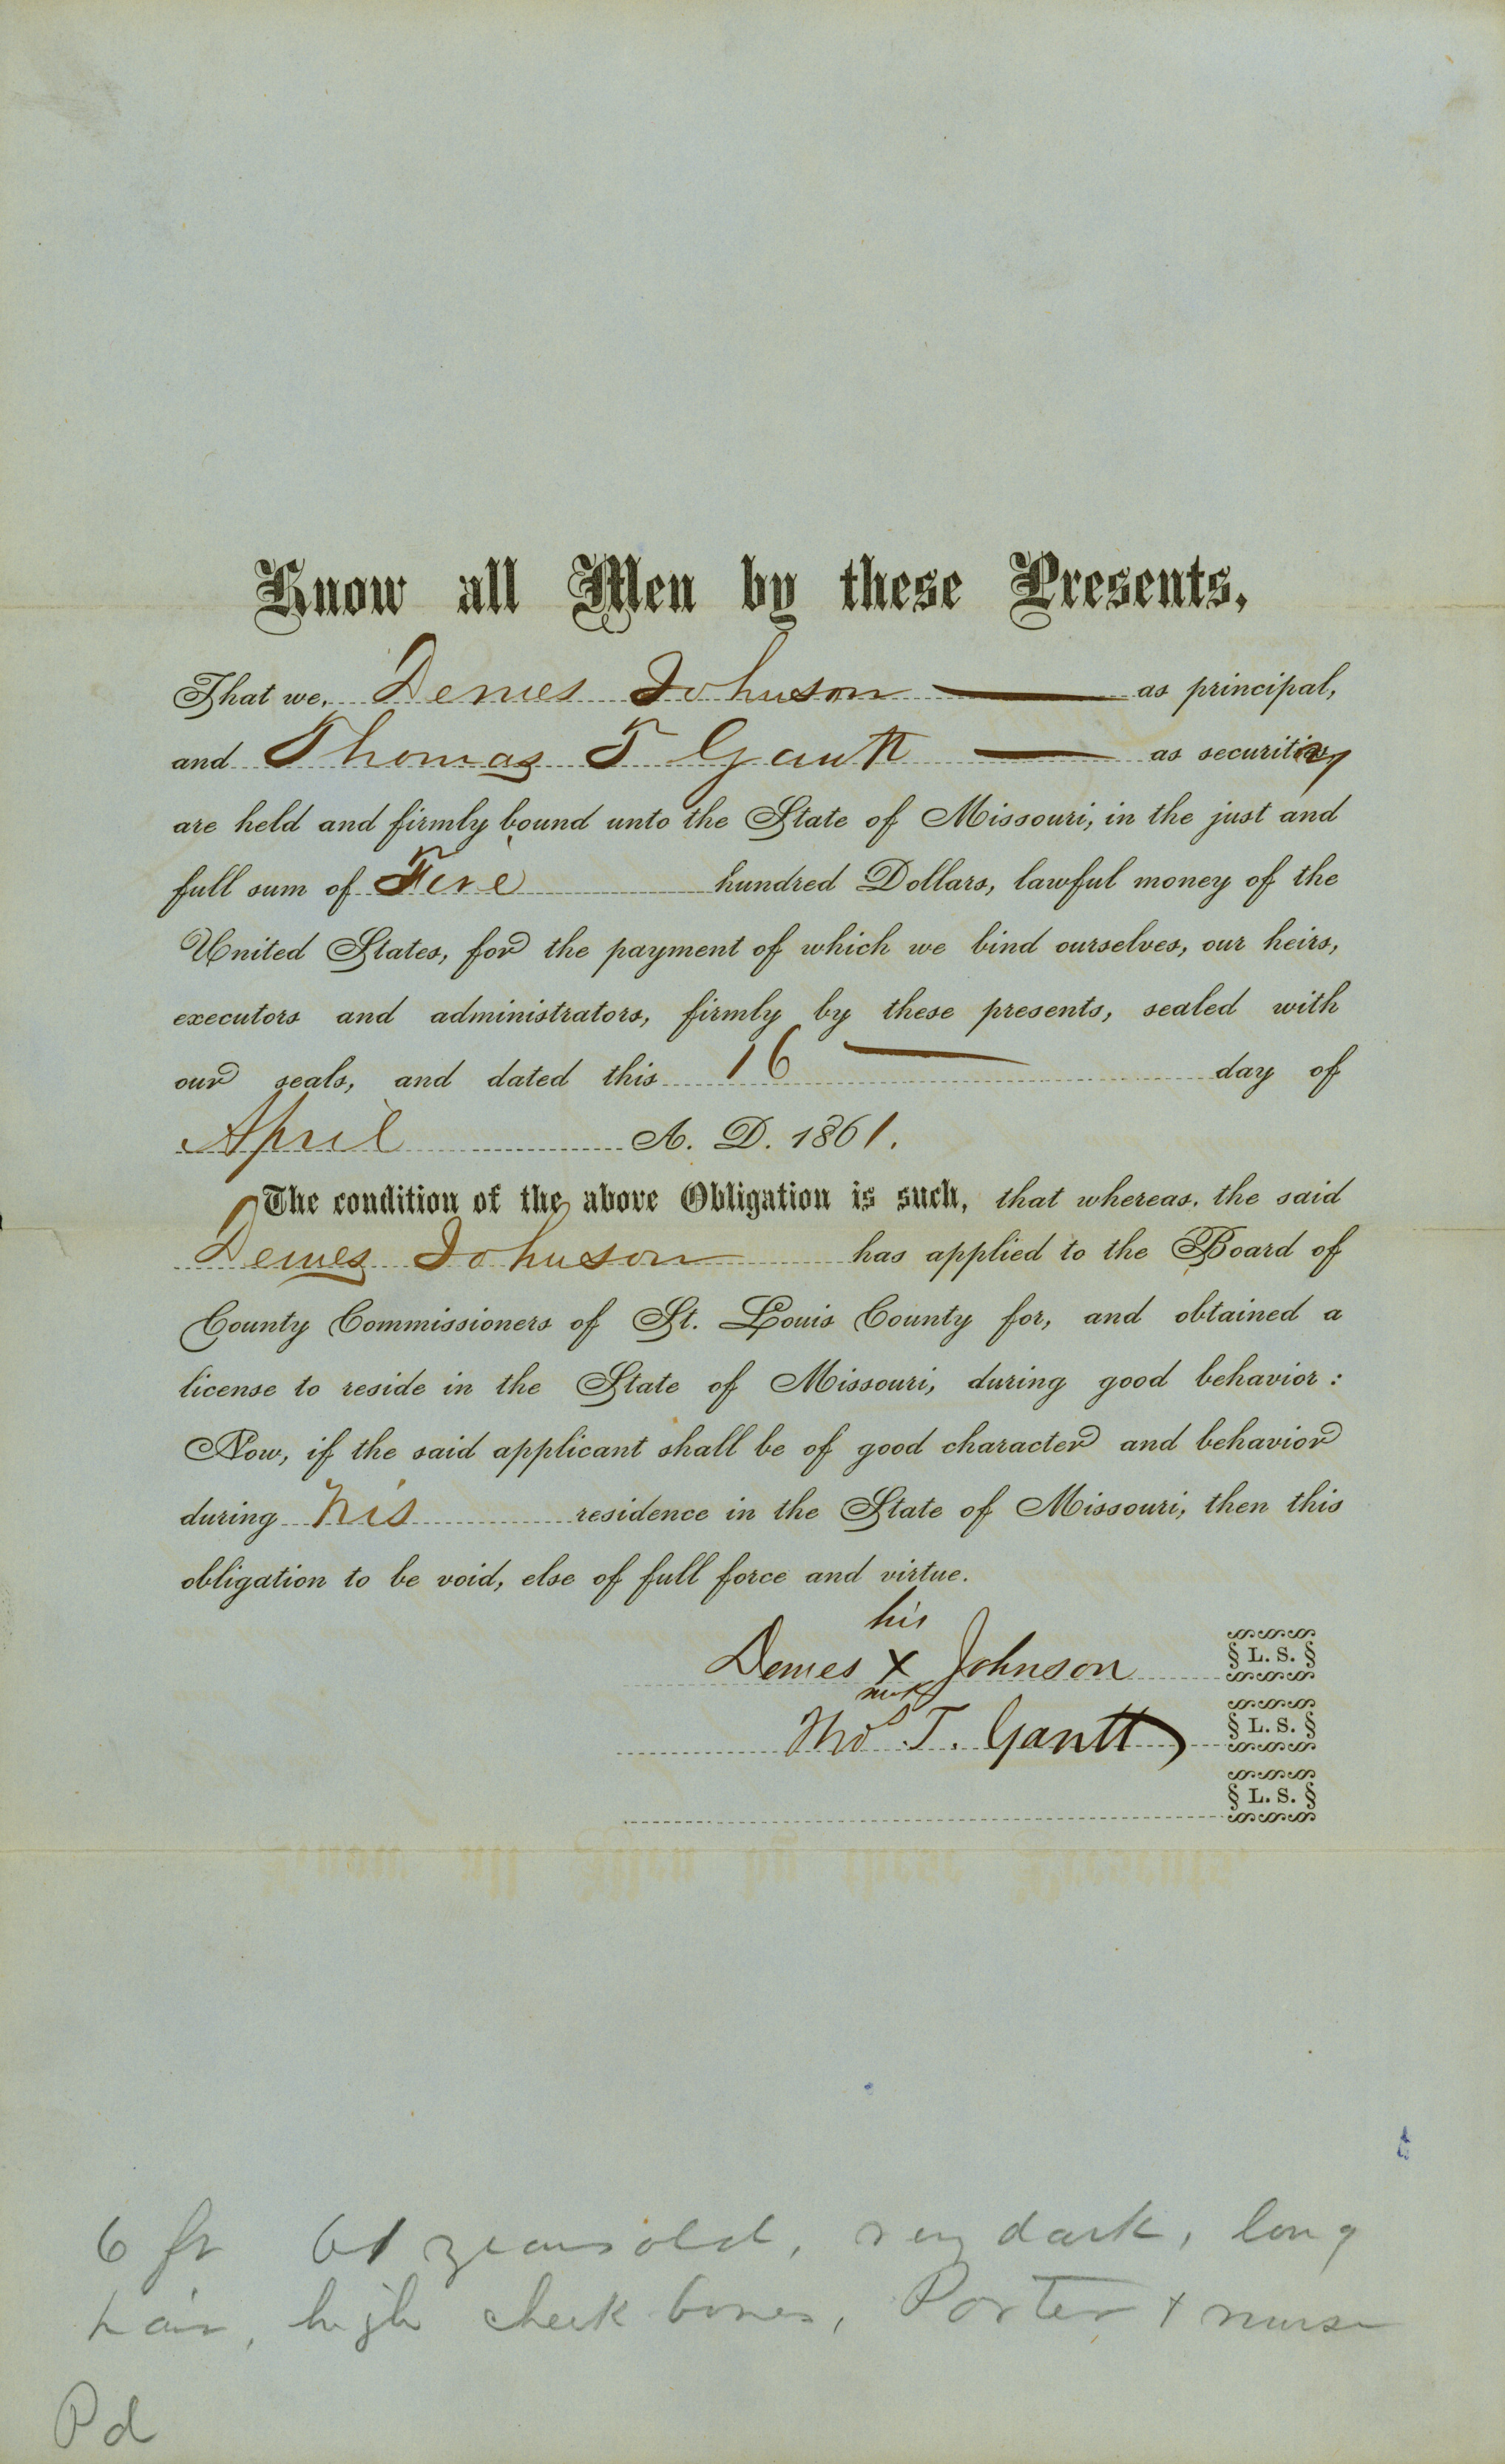 Know all Men by these Presents,
That we, Demes Johnson as principal,
and Thomas T Gantt as security
are held and firmly bound unto the State of Missouri, in the just and
full sum of Five hundred Dollars, lawful money of the
United States, for the payment of which we bind ourselves, our heirs,
executors and administrators, firmly by these presents, sealed with
our seals, and dated this 16 day of
April A. D. 1861.
The condition of the above Obligation is such, that whereas, the said
Demes Johnson has applied to the Board of
County Commissioners of St. Louis County for, and obtained a
license to reside in the State of Missouri, during good behavior:
Now, if the said applicant shall be of good character and behavior
during his residence in the State of Missouri, then this
obligation to be void, else of full force and virtue.
his
Demes X Johnson L. S.
mark
Tho s T. Gantt L. S.
L. S.
6 ft 61 years old, very dark, long
hair, high cheek bones, Porter + nurse
Pd